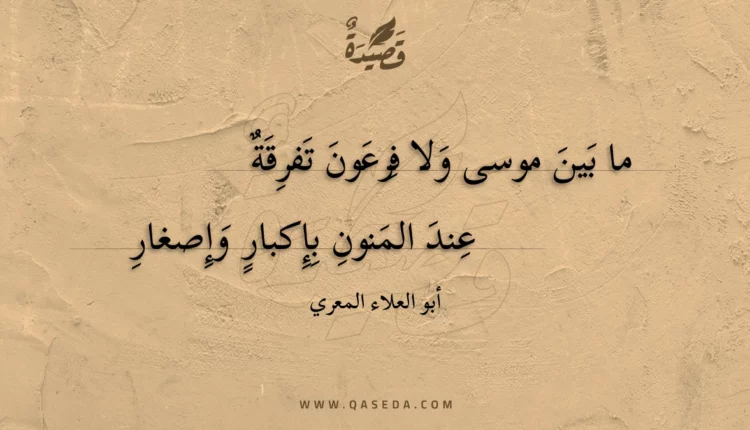 قَصِيدَةٌ
ما بَينَ موسى وَلا فِرعَونَ تَفرِقَةٌ
عِندَ المَنونِ بِإِكبارٍ وَإِصغارِ
أبو العلاء المعري
WWW.QASEDA.COM